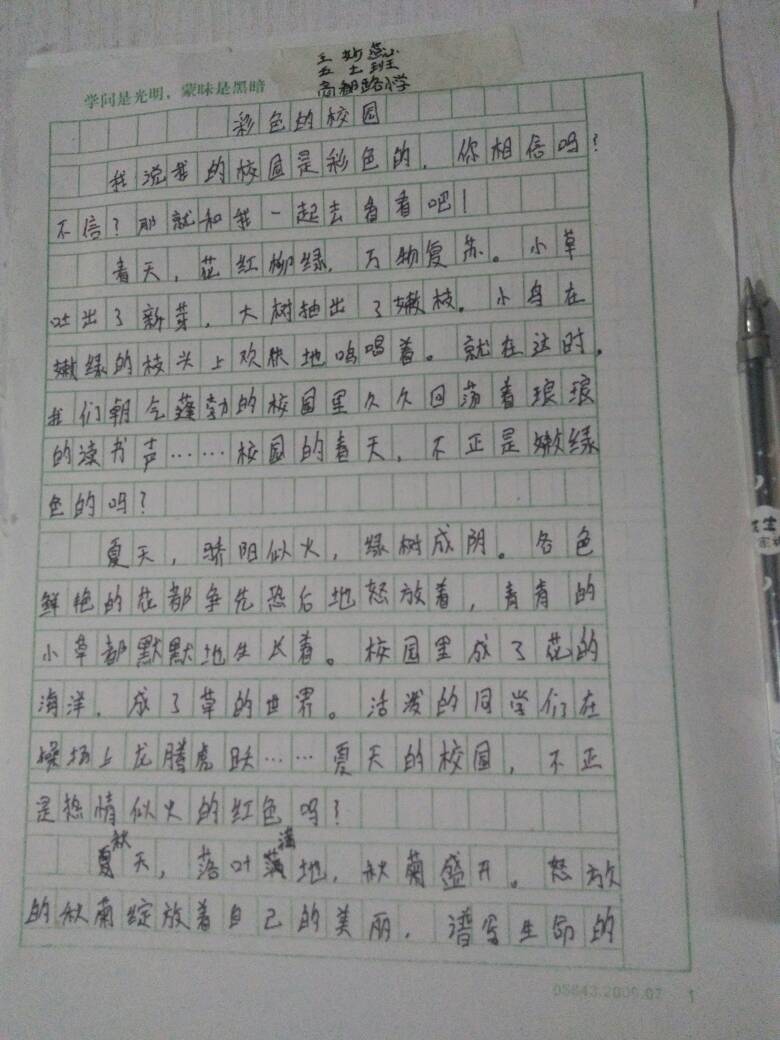 学问是光明，蒙昧是黑暗
五七班
商都路小学
彩色的校园
我说我的校园是彩色的，你相信吗？
不信？那就和我一起去看看吧！
春天，花红柳绿，万物复苏。小草
吐出了新芽，大树抽出了嫩枝。小鸟在
嫩绿的枝头上欢快地鸣唱着。就在这时，
我们朝气蓬勃的校园里久久回荡着琅琅
的读书声……校园的春天，不正是嫩绿
色的吗？
夏天，骄阳似火，绿树成阴。各色
鲜艳的花都争先恐后地怒放着，青青的
小草都默默地生长着。校园里成了花的
海洋，成了草的世界。活泼的同学们在
操场上龙腾虎跃……夏天的校园，不正
是热情似火的红色吗？
秋天，落叶满地，秋菊盛开。怒放
的秋菊绽放着自己的美丽，谱写生命的
05643.2006.07 1